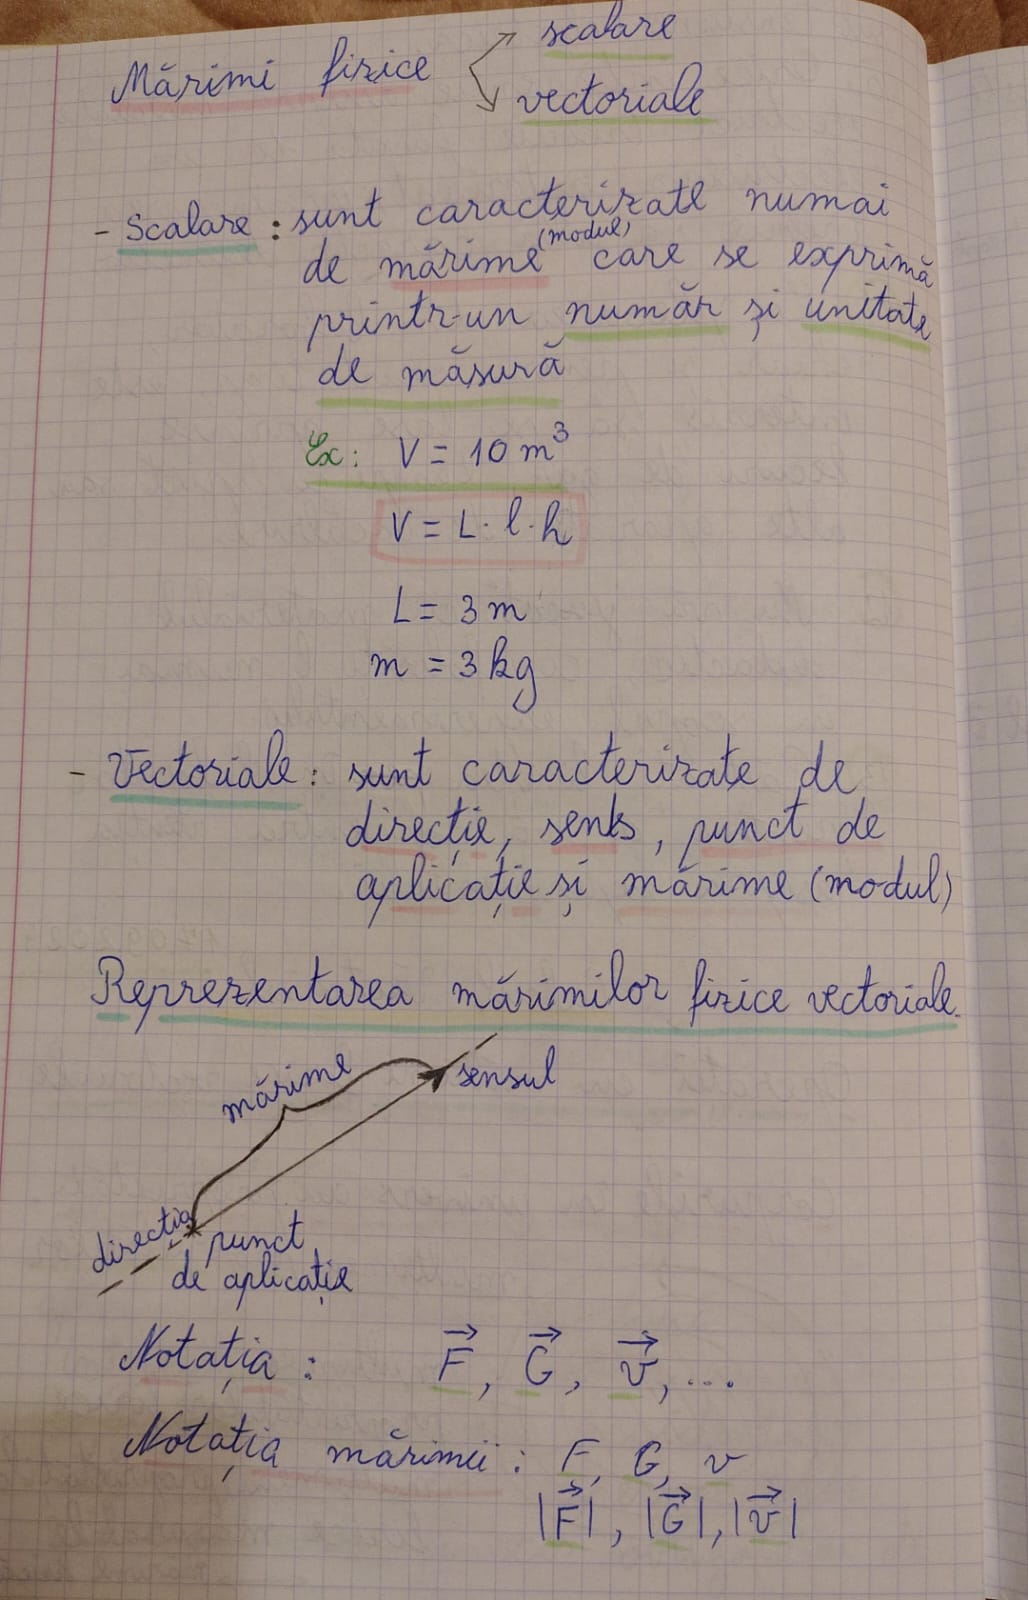 scalare
Mărimi fizice
vectoriale
- Scalare : sunt caracterizate numai
(modul)
de mărime care se exprimă
printr-un număr și unitate
de măsură
Ex: V = 10 m³
V = L · l · h
L = 3 m
m = 3 kg
- Vectoriale : sunt caracterizate de
direcție, sens, punct de
aplicație și mărime (modul)
Reprezentarea mărimilor fizice vectoriale.
mărime
sensul
direcția
punct
de aplicație
Notația : F⃗, G⃗, v⃗, ...
Notația mărimii : F, G, v
|F⃗|, |G⃗|, |v⃗|